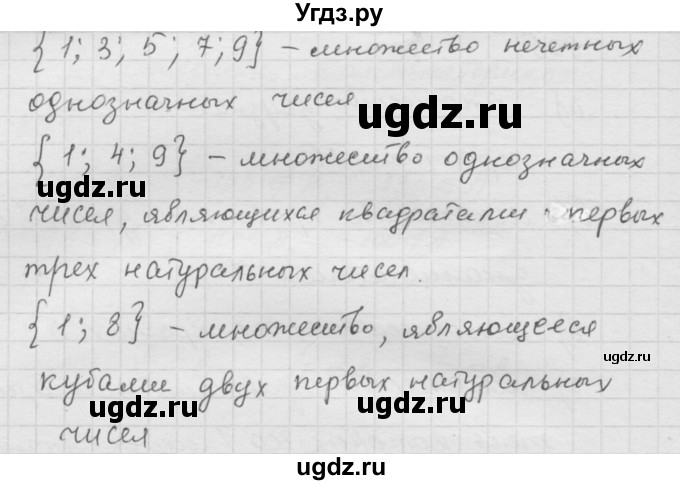 Угдз.ру
{1; 3; 5; 7; 9} – множество нечетных
однозначных чисел
ugdz.ru
ugdz.ru
{1; 4; 9} – множество однозначных
ugdz.ru
ugdz.ru
чисел, являющихся квадратами первых
трех натуральных чисел.
ugdz.ru
ugdz.ru
{1; 8} – множество, являющееся
ugdz.ru
кубами двух первых натуральных
ugdz.ru
ugdz.ru
чисел
ugdz.ru